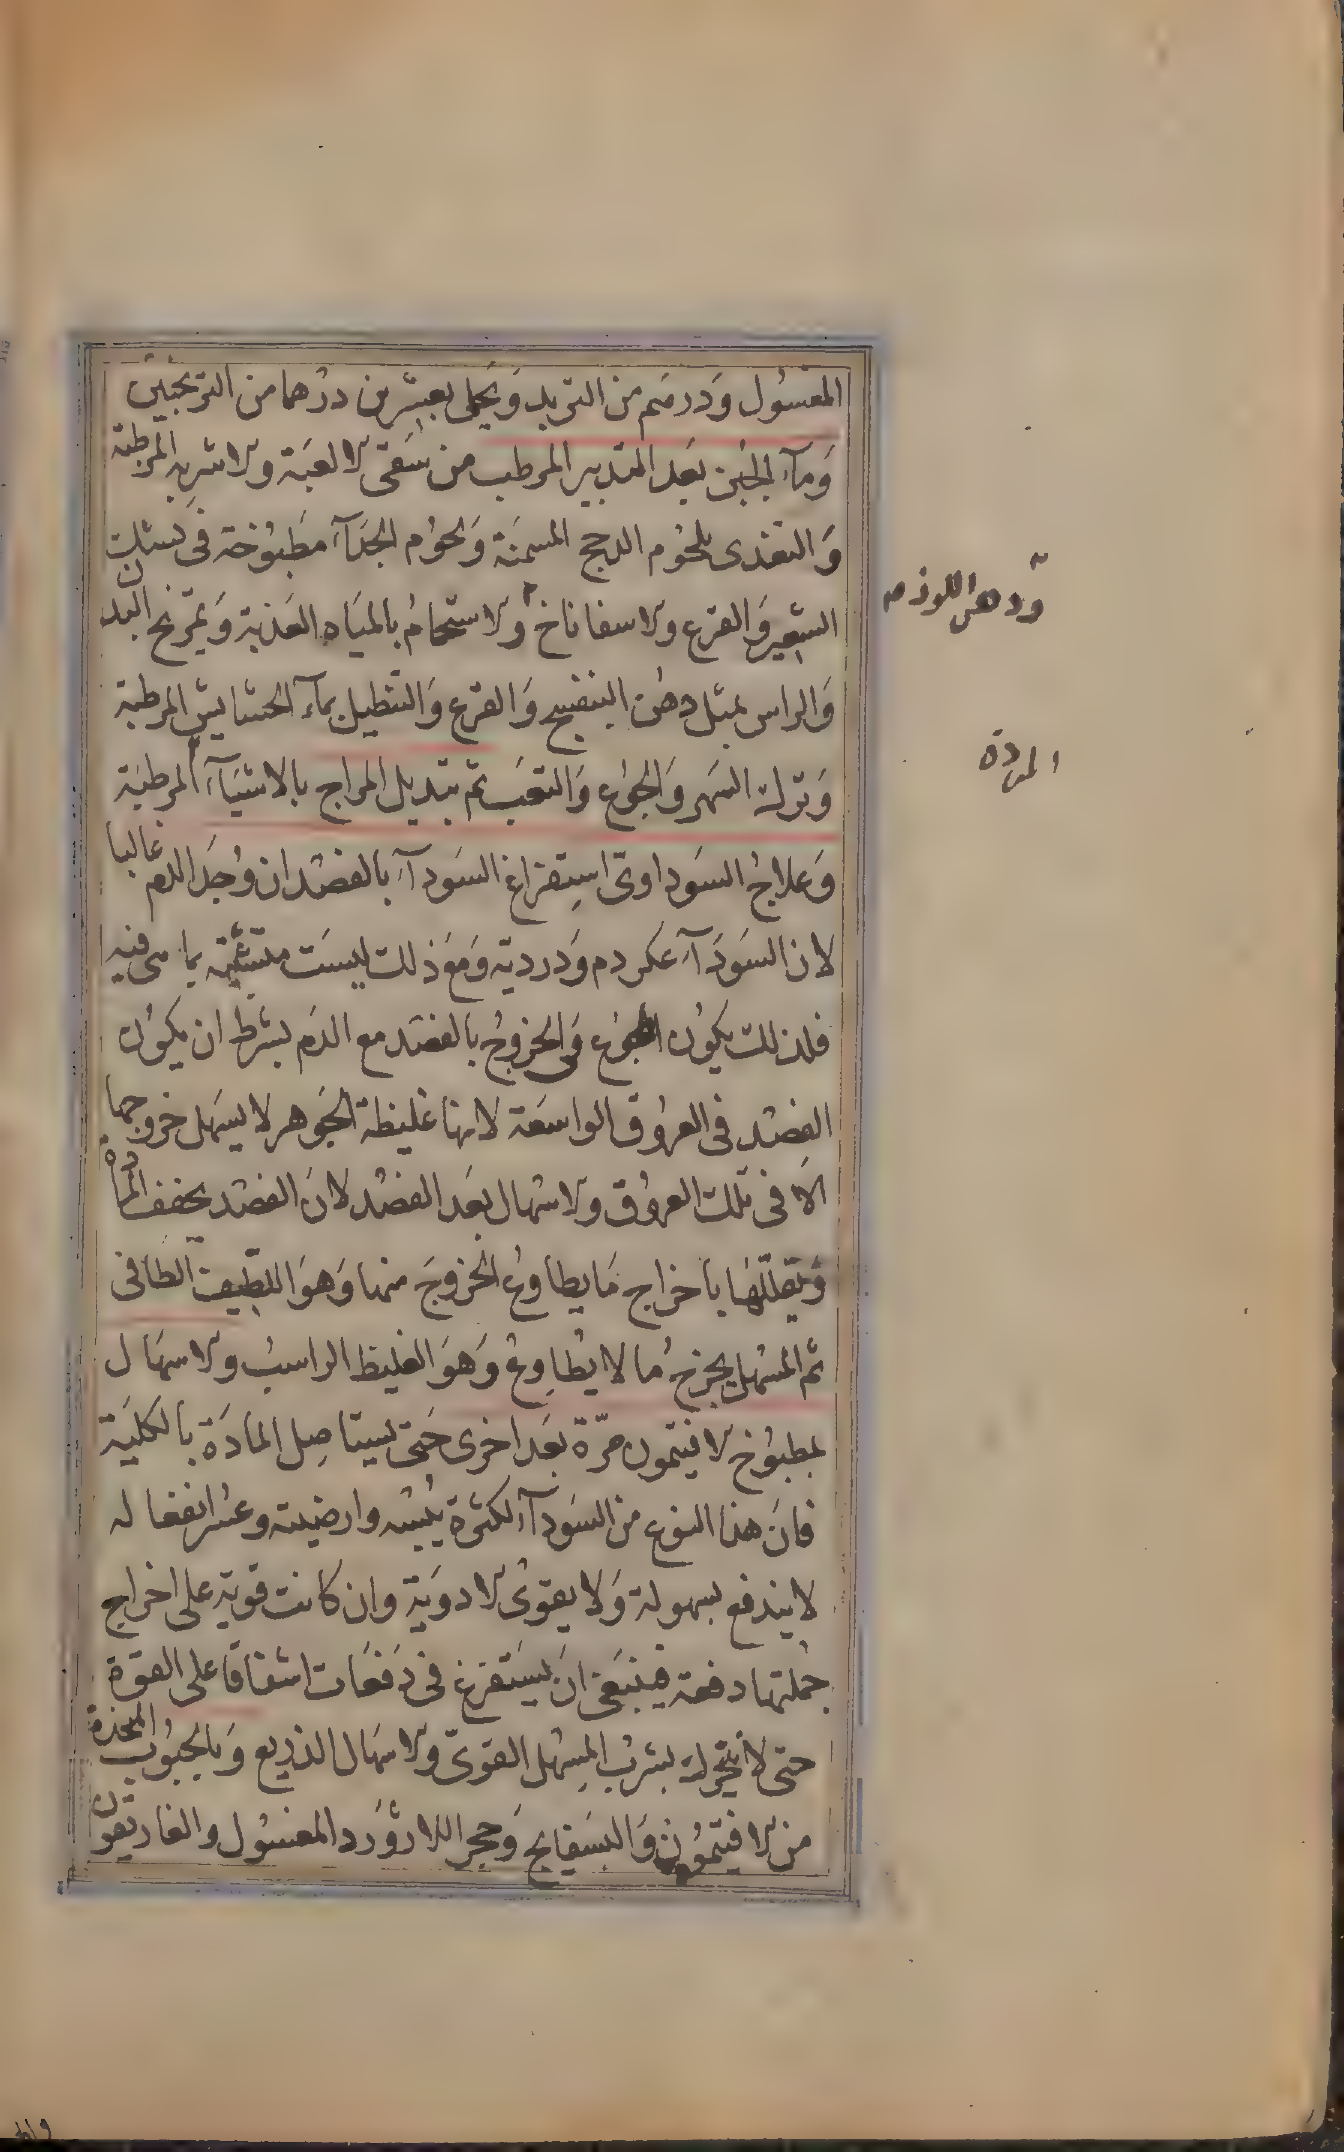 المغسول ودرهم من التربد ويحلى بعشرين درهما من الترنجبين
وماء الجبن بعد التدبير المرطب من سقى الالعبة والاشربة المرطبة
والتغذى بلحوم الدجج المسمنة ولحوم الجداء مطبوخة فى كشك
الشعير والقرع والاسفاناخ والاستحمام بالمياه العذبة وتمريخ البدن
ودهن اللوز صح
والراس بمثل دهن البنفسج والقرع والتنطيل بماء الحشايش المرطبة
وترك السهر والجوع والتعب ثم تبديل المزاج بالاشياء المرطبة
المبردة
وعلاج السوداوى استفراغ السوداء بالفصد ان وجد الدم غالبا
لان السوداء عكر دم ودرديه ومع ذلك ليست متشبثة بما هى فيه
فلذلك يكون الخروج بالفصد مع الدم بشرط ان يكون
الفصد فى العروق الواسعة لانها غليظة الجوهر لا يسهل خروجها
الا فى تلك العروق والاسهال بعد الفصد لان الفصد يخفف المادة
ويقللها باخراج ما يطاوع الخروج منها وهو اللطيف الطافى
ثم المسهل يخرج ما لا يطاوع وهو الغليظ الراسب والاسهال
بمطبوخ الافتيمون مرة بعد اخرى حتى يستاصل المادة بالكلية
فان هذا النوع من السوداء لكثرة يبسه وارضيته وعسر انفعاله
لا يندفع بسهولة ولا يقوى الادوية وان كانت قوية على اخراج
جملتها دفعة فينبغى ان يستفرغ فى دفعات اشفاقا على القوة
حتى لا تتحرك بشرب المسهل القوى والاسهال الذريع وبالحبوب المتخذة
من الافتيمون والبسفايج وحجر اللازورد المغسول والغاريقون